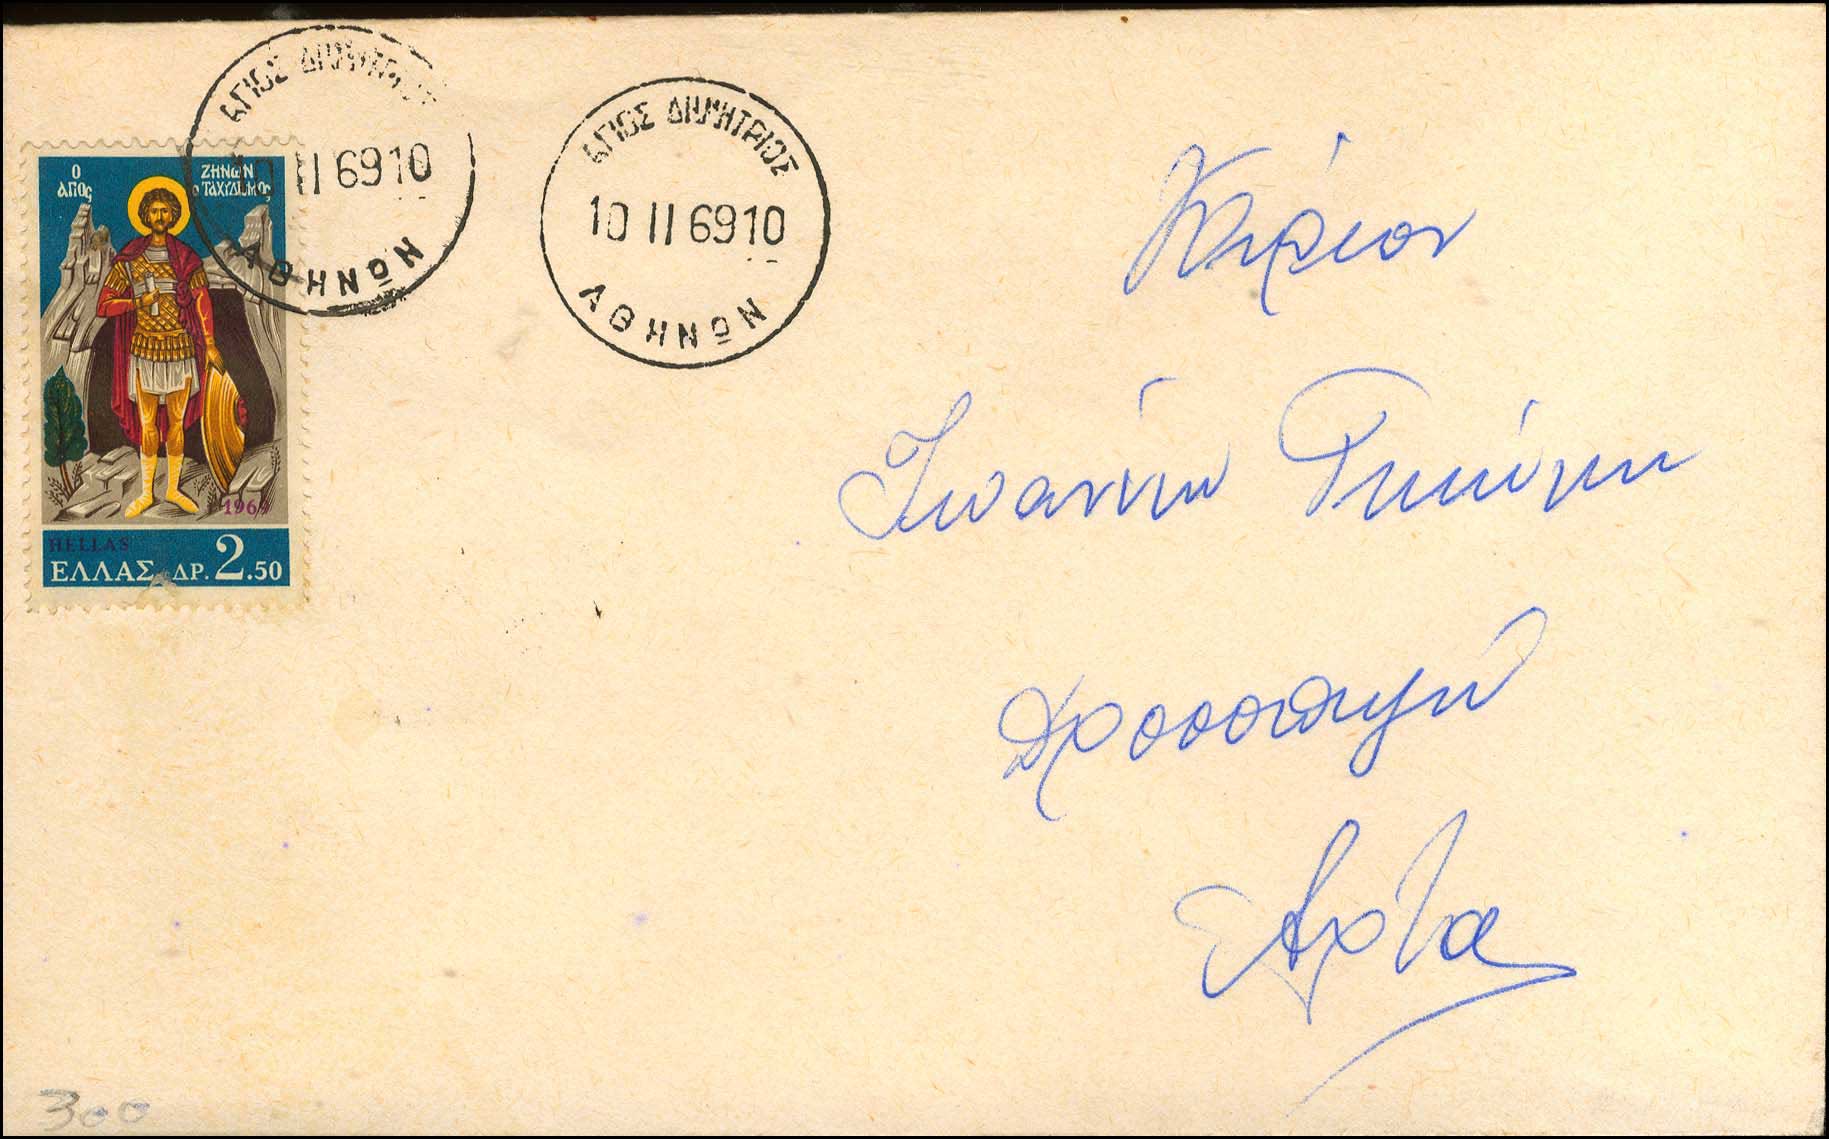 ΑΓΙΟΣ ΔΗΜΗΤΡΙΟΣ
10 II 69 10
ΑΘΗΝΩΝ
ΑΓΙΟΣ ΔΗΜΗΤΡΙΟΣ
10 II 69 10
ΑΘΗΝΩΝ
Ο ΑΓΙΟς
ΖΗΝΩΝ
ο ΤΑΧΥΔΡΟΜΟς
1969
HELLAS
ΕΛΛΑΣ ΔΡ. 2.50
Κύριον
Ιωάννην
Δροσοπηγή
Άρτα
300